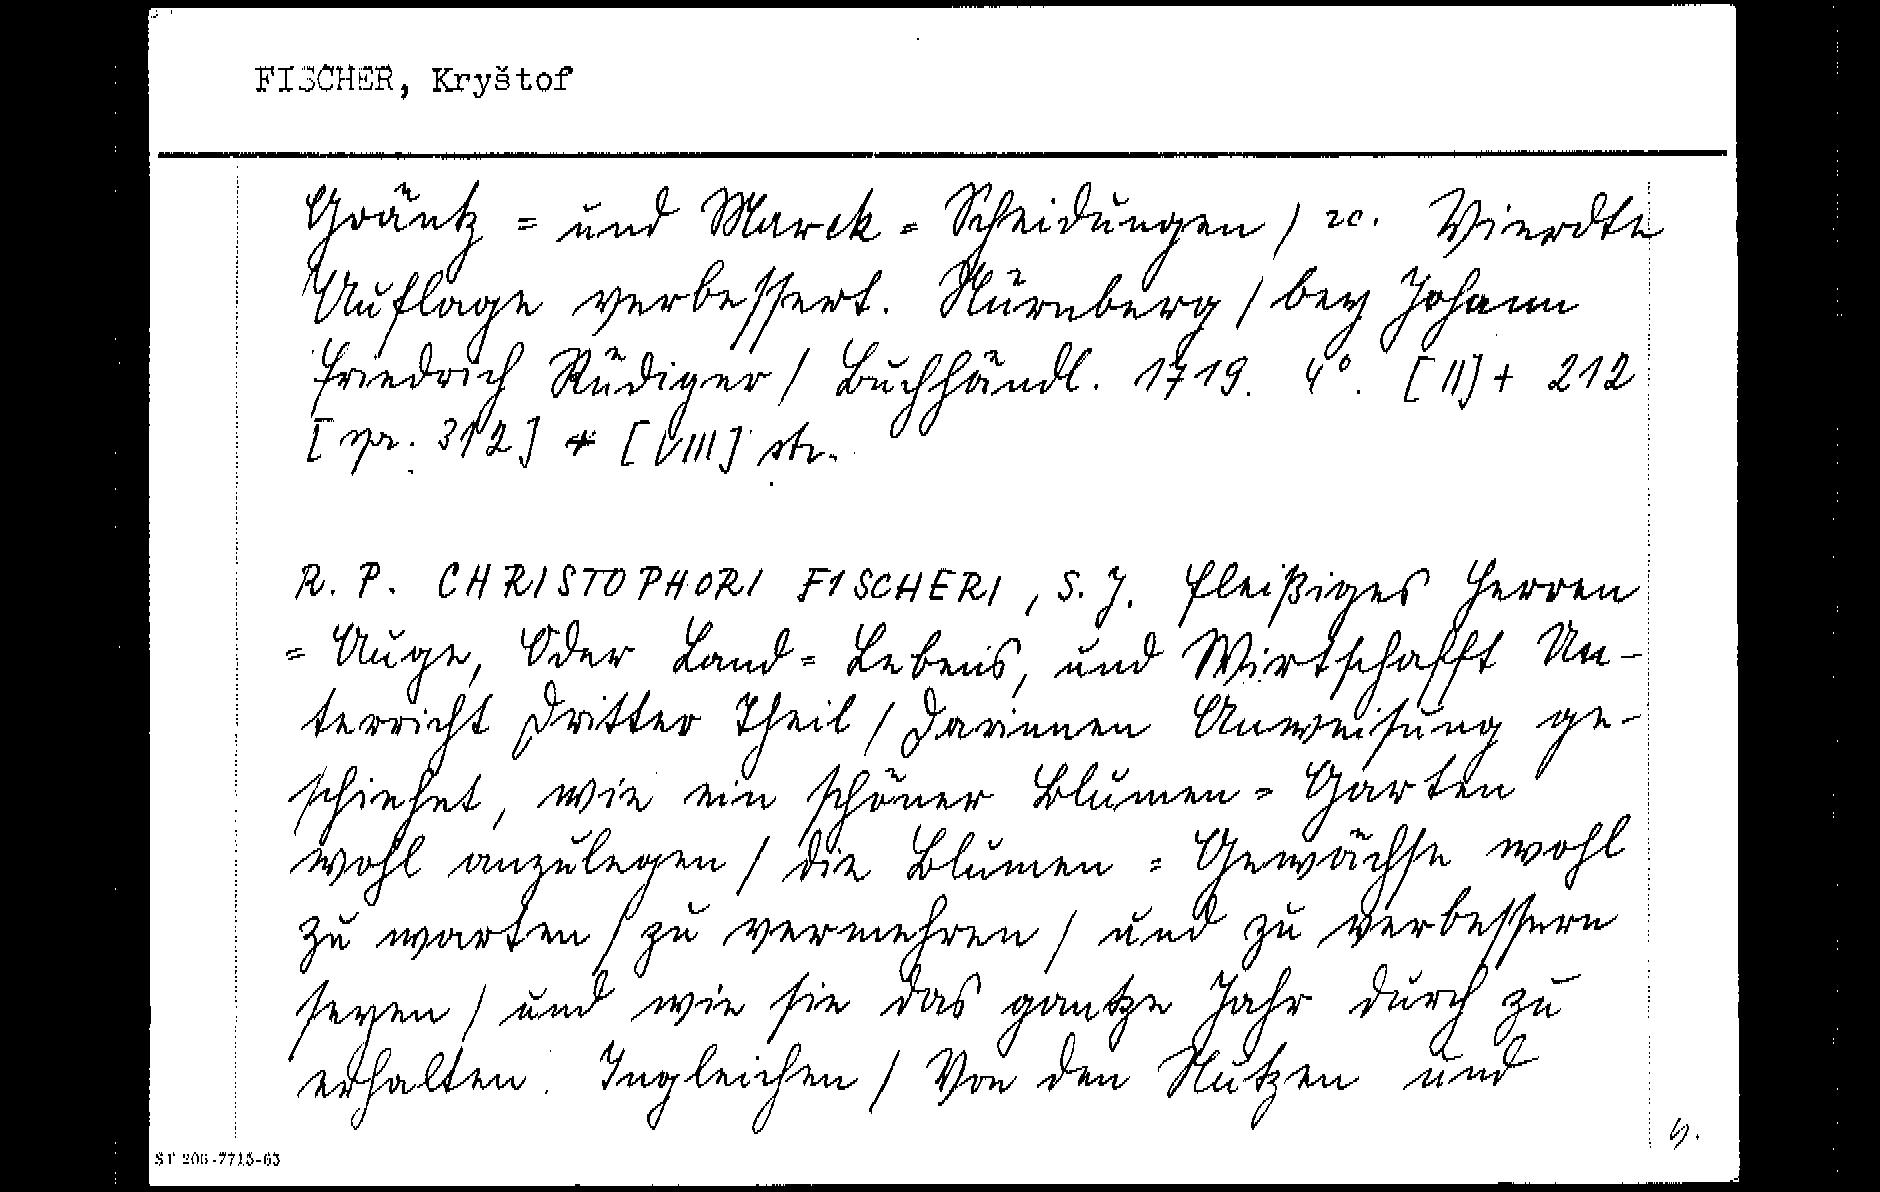 FISCHER, Kryštof
Gräntz = und Marck = Scheidungen / ꝛc. Vierdte
Auflage verbessert. Nürnberg / bey Johann
Friedrich Rüdiger / Buchhändl. 1719. 4°. [II] + 212
[ 312] + [VIII] str.
R. P. CHRISTOPHORI FISCHERI, S. J. fleißiges Herren
= Auge, Oder Land = Lebens, und Wirtschafft Un-
terricht Dritter Theil / Darinnen Anweisung ge-
schiehet, wie ein schöner Blumen = Garten
wohl anzulegen / die Blumen = Gewächse wohl
zu warten / zu vermehren / und zu verbessern
seyen / und wie sie das gantze Jahr durch zu
erhalten. Ingleichen / Von den Nutzen und
ST 206-7715-63